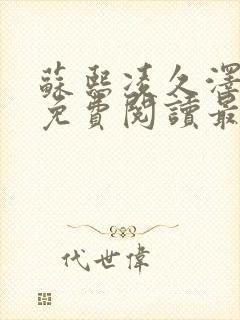 蘇熙凌久澤
免費閱讀最
代世偉